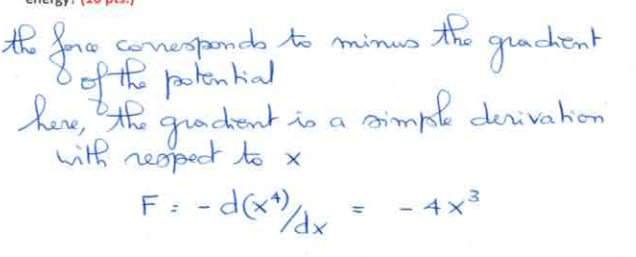 energy? (10 pts.)
the force corresponds to minus the gradient
of the potential
here, the gradient is a simple derivation
with respect to x
F = - d(x⁴)/dx = - 4x³